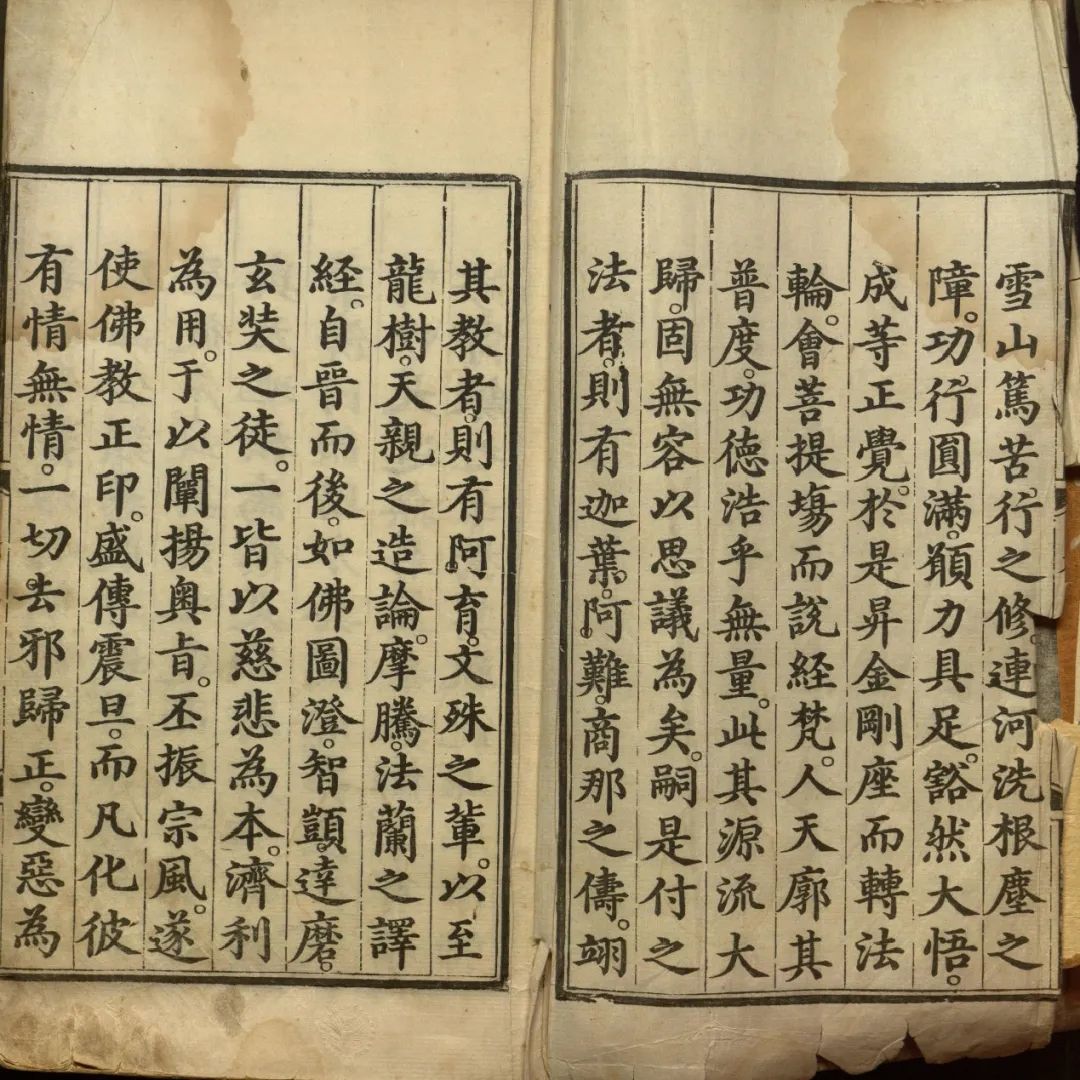 雪山篤苦。行之修。連河洗根塵之
障。功行圓滿。願力具足。豁然大悟。
成等正覺。於是昇金剛座而轉法
輪。會菩提場而說經梵。人天廓其
普度。功德浩乎無量。此其源流大
歸。固無容以思議為矣。嗣是付之
法者。則有迦葉。阿難。商那之儔。翊
其教者。則有阿育。文殊之輩。以至
龍樹。天親之造論。摩騰。法蘭之譯
経。自晉而後。如佛圖澄。智顗。達磨。
玄奘之徒。一皆以慈悲為本。濟利
為用。于以闡揚奥旨。丕振宗風。遂
使佛教正印。盛傳震旦。而凡化彼
有情無情。一切去邪歸正。變惡為